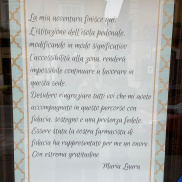 La mia avventura finisce qui.
L'istituzione dell'isola pedonale,
modificando in modo significativo
l'accessibilità alla zona, renderà
impossibile continuare a lavorare in
questa sede.
Desidero ringraziare tutti voi che mi avete
accompagnato in questo percorso con
fiducia, sostegno e una presenza fedele.
Essere stata la vostra farmacista di
fiducia ha rappresentato per me un onore.
Con estrema gratitudine
Maria Laura